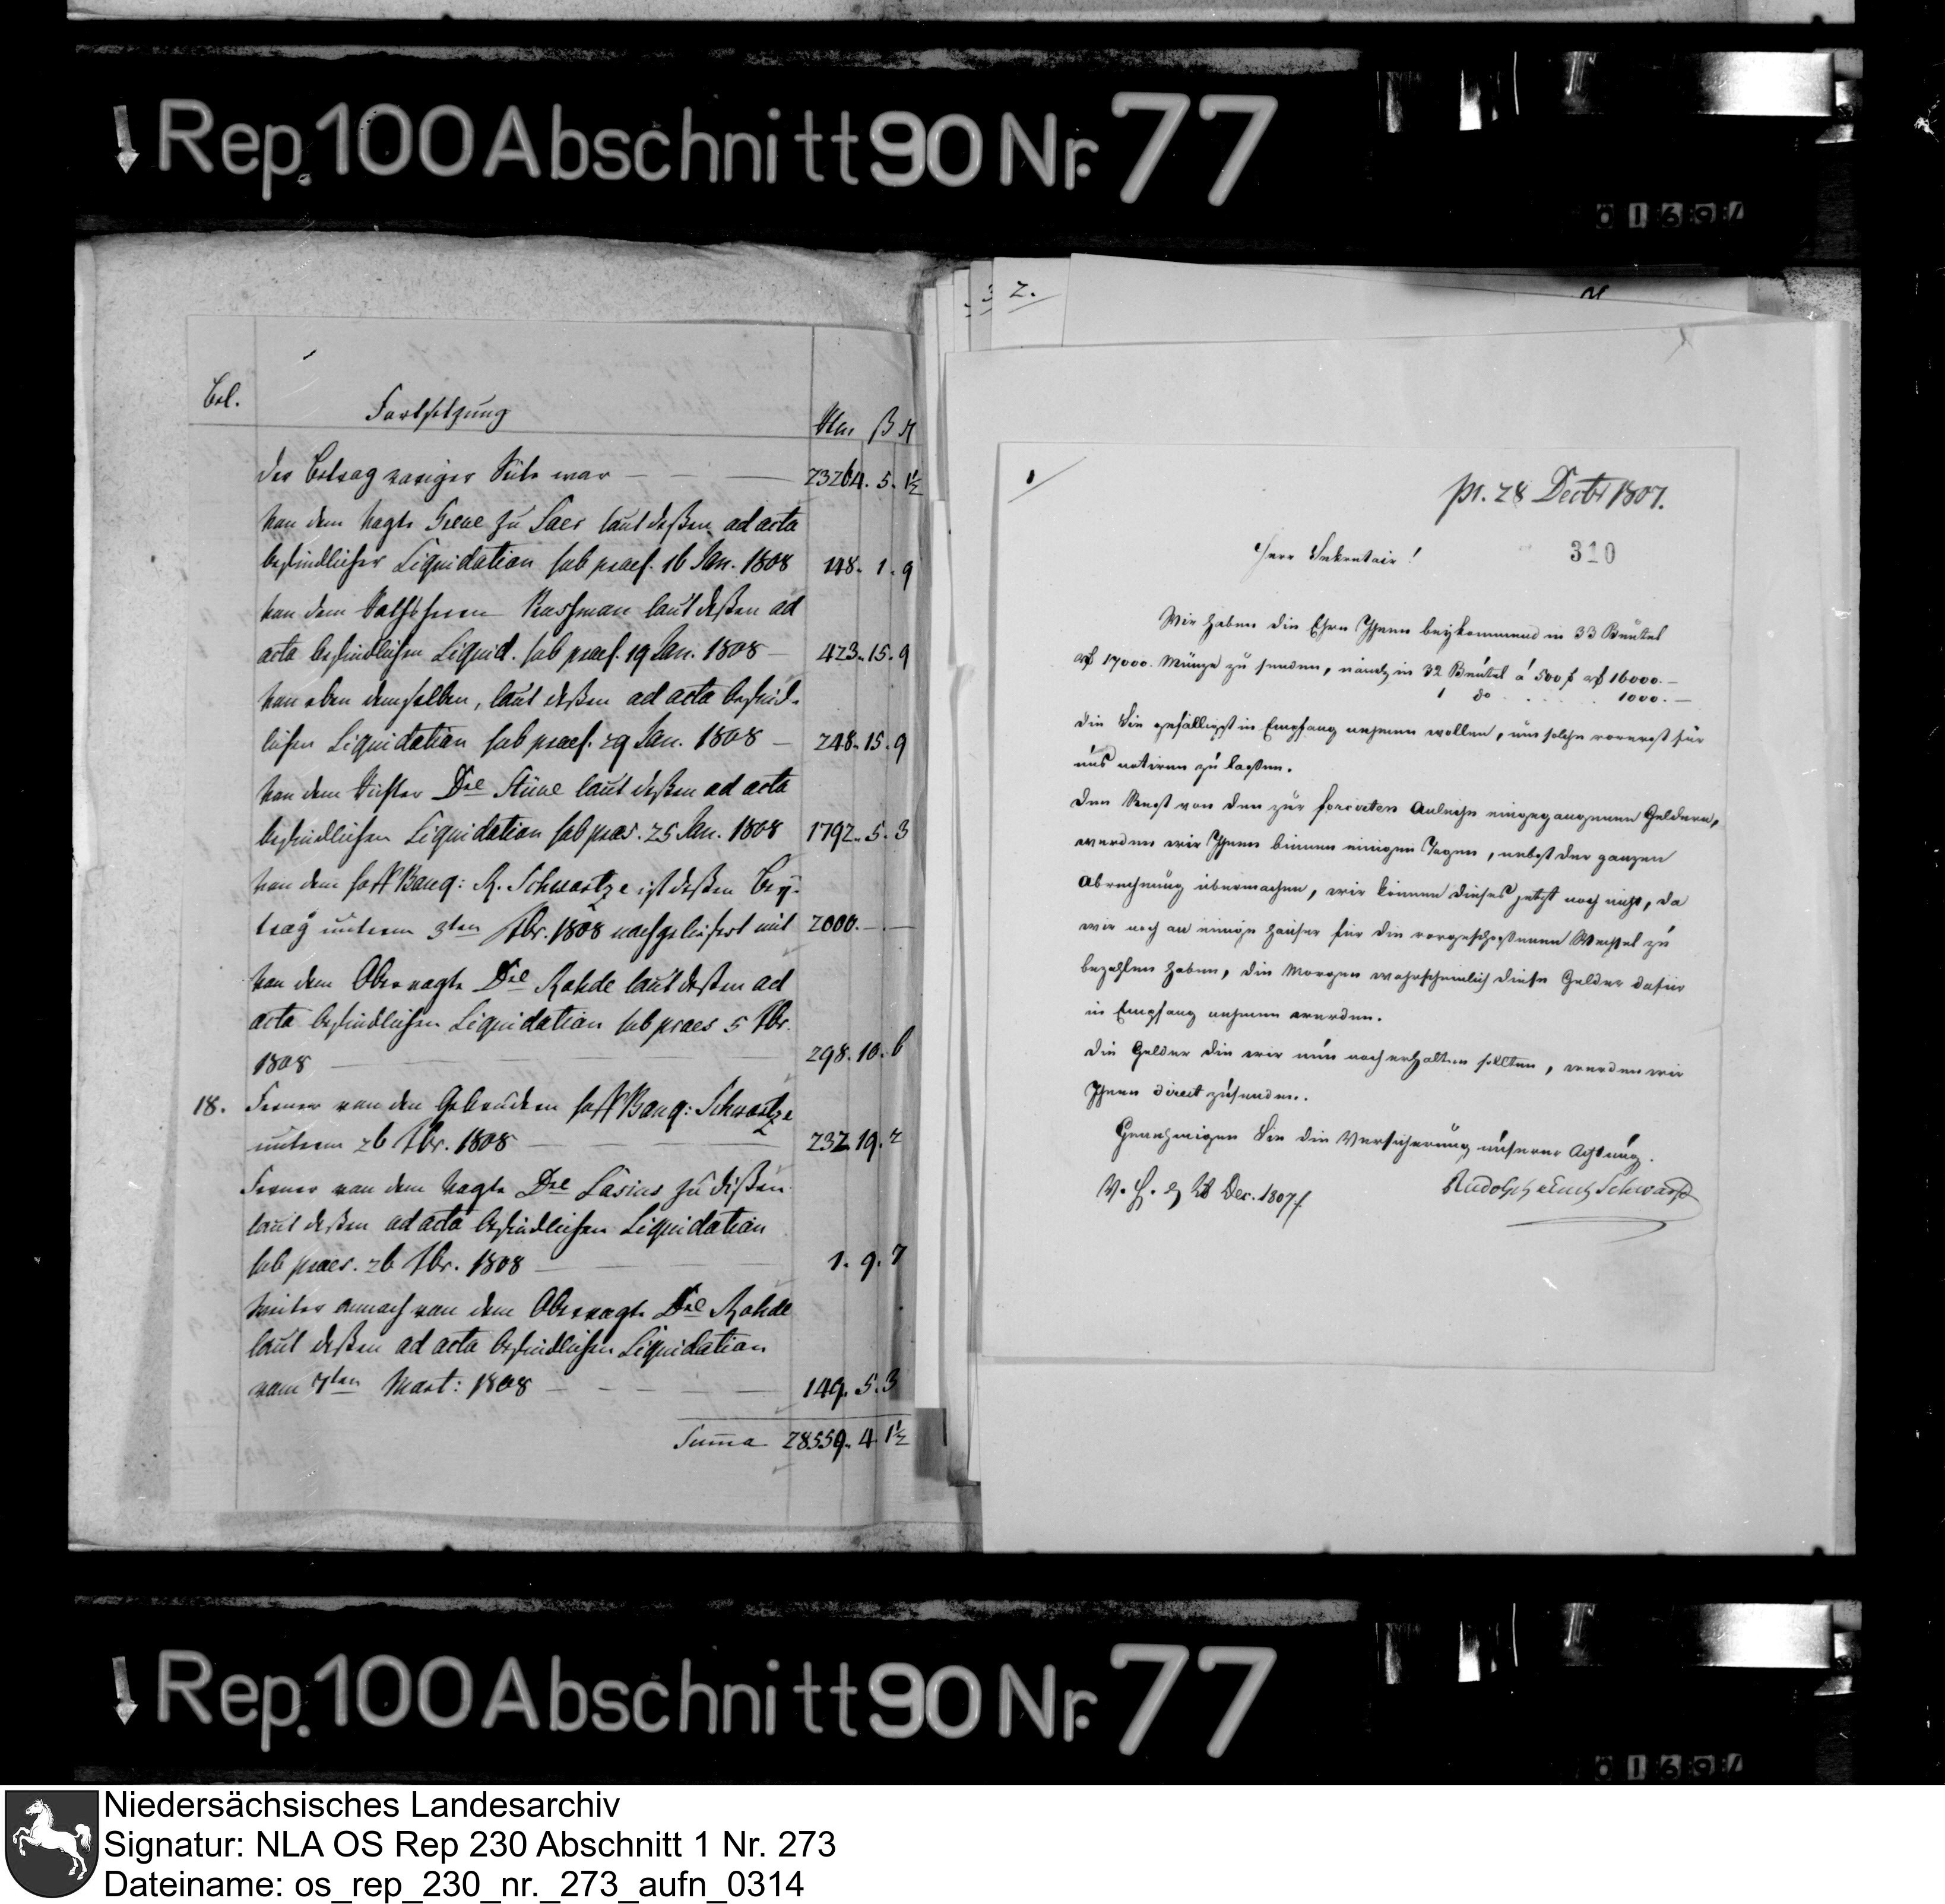 Rep. 100 Abschnitt 90 Nr. 77
Bel.
Fortsetzung
Rthr ß ₰
Der Betrag voriger Seite war — — 23264. 5. 1½
Von dem Vogte Greve zu Laer laut deßen ad acta
befindlicher Liquidation sub praes. 16 Jan. 1808 148. 1. 9
Von dem laut deßen ad
acta befindlichen Liquid. sub praes. 19 Jan. 1808 — 423. 15. 9
Von eben demselben, laut deßen ad acta befind-
lichen Liquidation sub praes. 29 Jan. 1808 — 248. 15. 9
Von dem Richter Stüve laut deßen ad acta
befindlichen Liquidation sub praes. 25 Jan. 1808 1792. 5. 3
Von dem Hoff Banq: R. Schwartze ist deßen Bey-
trag unterm 3ten Fbr. 1808 nachgeliefert mit 2000. — —
Von dem Obervogte Rohde laut deßen ad
acta befindlichen Liquidation sub praes 5 Fbr.
1808 — 298. 10. 6
18. Ferner von den Gebrüdern Hoff Banq: Schwartze
unterm 26 Fbr. 1808 — — — 232. 19. 2
Ferner von dem Vogte Lasius zu Dißen
laut deßen ad acta befindlichen Liquidation
sub praes. 26 Fbr. 1808 — — 1. 9. 7
Weiter annoch von dem Obervogte Rohde
laut deßen ad acta befindlichen Liquidation
vom 7ten Mart: 1808 — — — — 149. 5. 3
Summa 28559. 4. 1½
2.
1
pr. 28 Decbr 1807.
310
Herr Sekretair!
Wir haben die Ehre Ihnen beykommend in 33 Beutel
17000. Münze zu senden, nämlich in 32 Beutel á 500 16000. —
1 do . . . . . 1000. —
die Sie gefälligst in Empfang nehmen wollen, um solche vorerst für
uns notiren zu laßen.
Den Rest von den zur forcirten Anleihe eingegangenen Geldern,
werden wir Ihnen binnen einigen Tagen, nebst der ganzen
Abrechnung übermachen, wir können dieses jetzt noch nicht, da
wir noch an einige Häuser für die vorgeschoßenen Wechsel zu
bezahlen haben, die Morgen wahrscheinlich diese Gelder dafür
in Empfang nehmen werden.
Die Gelder die wir nun noch erhalten sollten, werden wir
Ihnen direct zusenden.
Genehmigen Sie die Versicherung unserer Achtung.
V. H. d 28 Dec. 1807
Rudolph Schwartze
Rep. 100 Abschnitt 90 Nr. 77
Niedersächsisches Landesarchiv
Signatur: NLA OS Rep 230 Abschnitt 1 Nr. 273
Dateiname: os_rep_230_nr._273_aufn_0314